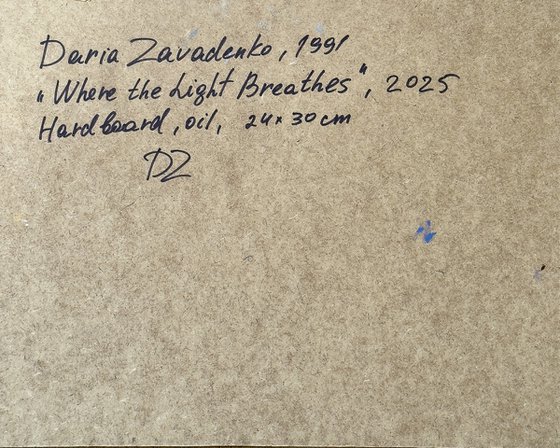 Daria Zavadenko, 1991
"Where the Light Breathes", 2025
Hardboard, oil, 24×30 cm
DZ